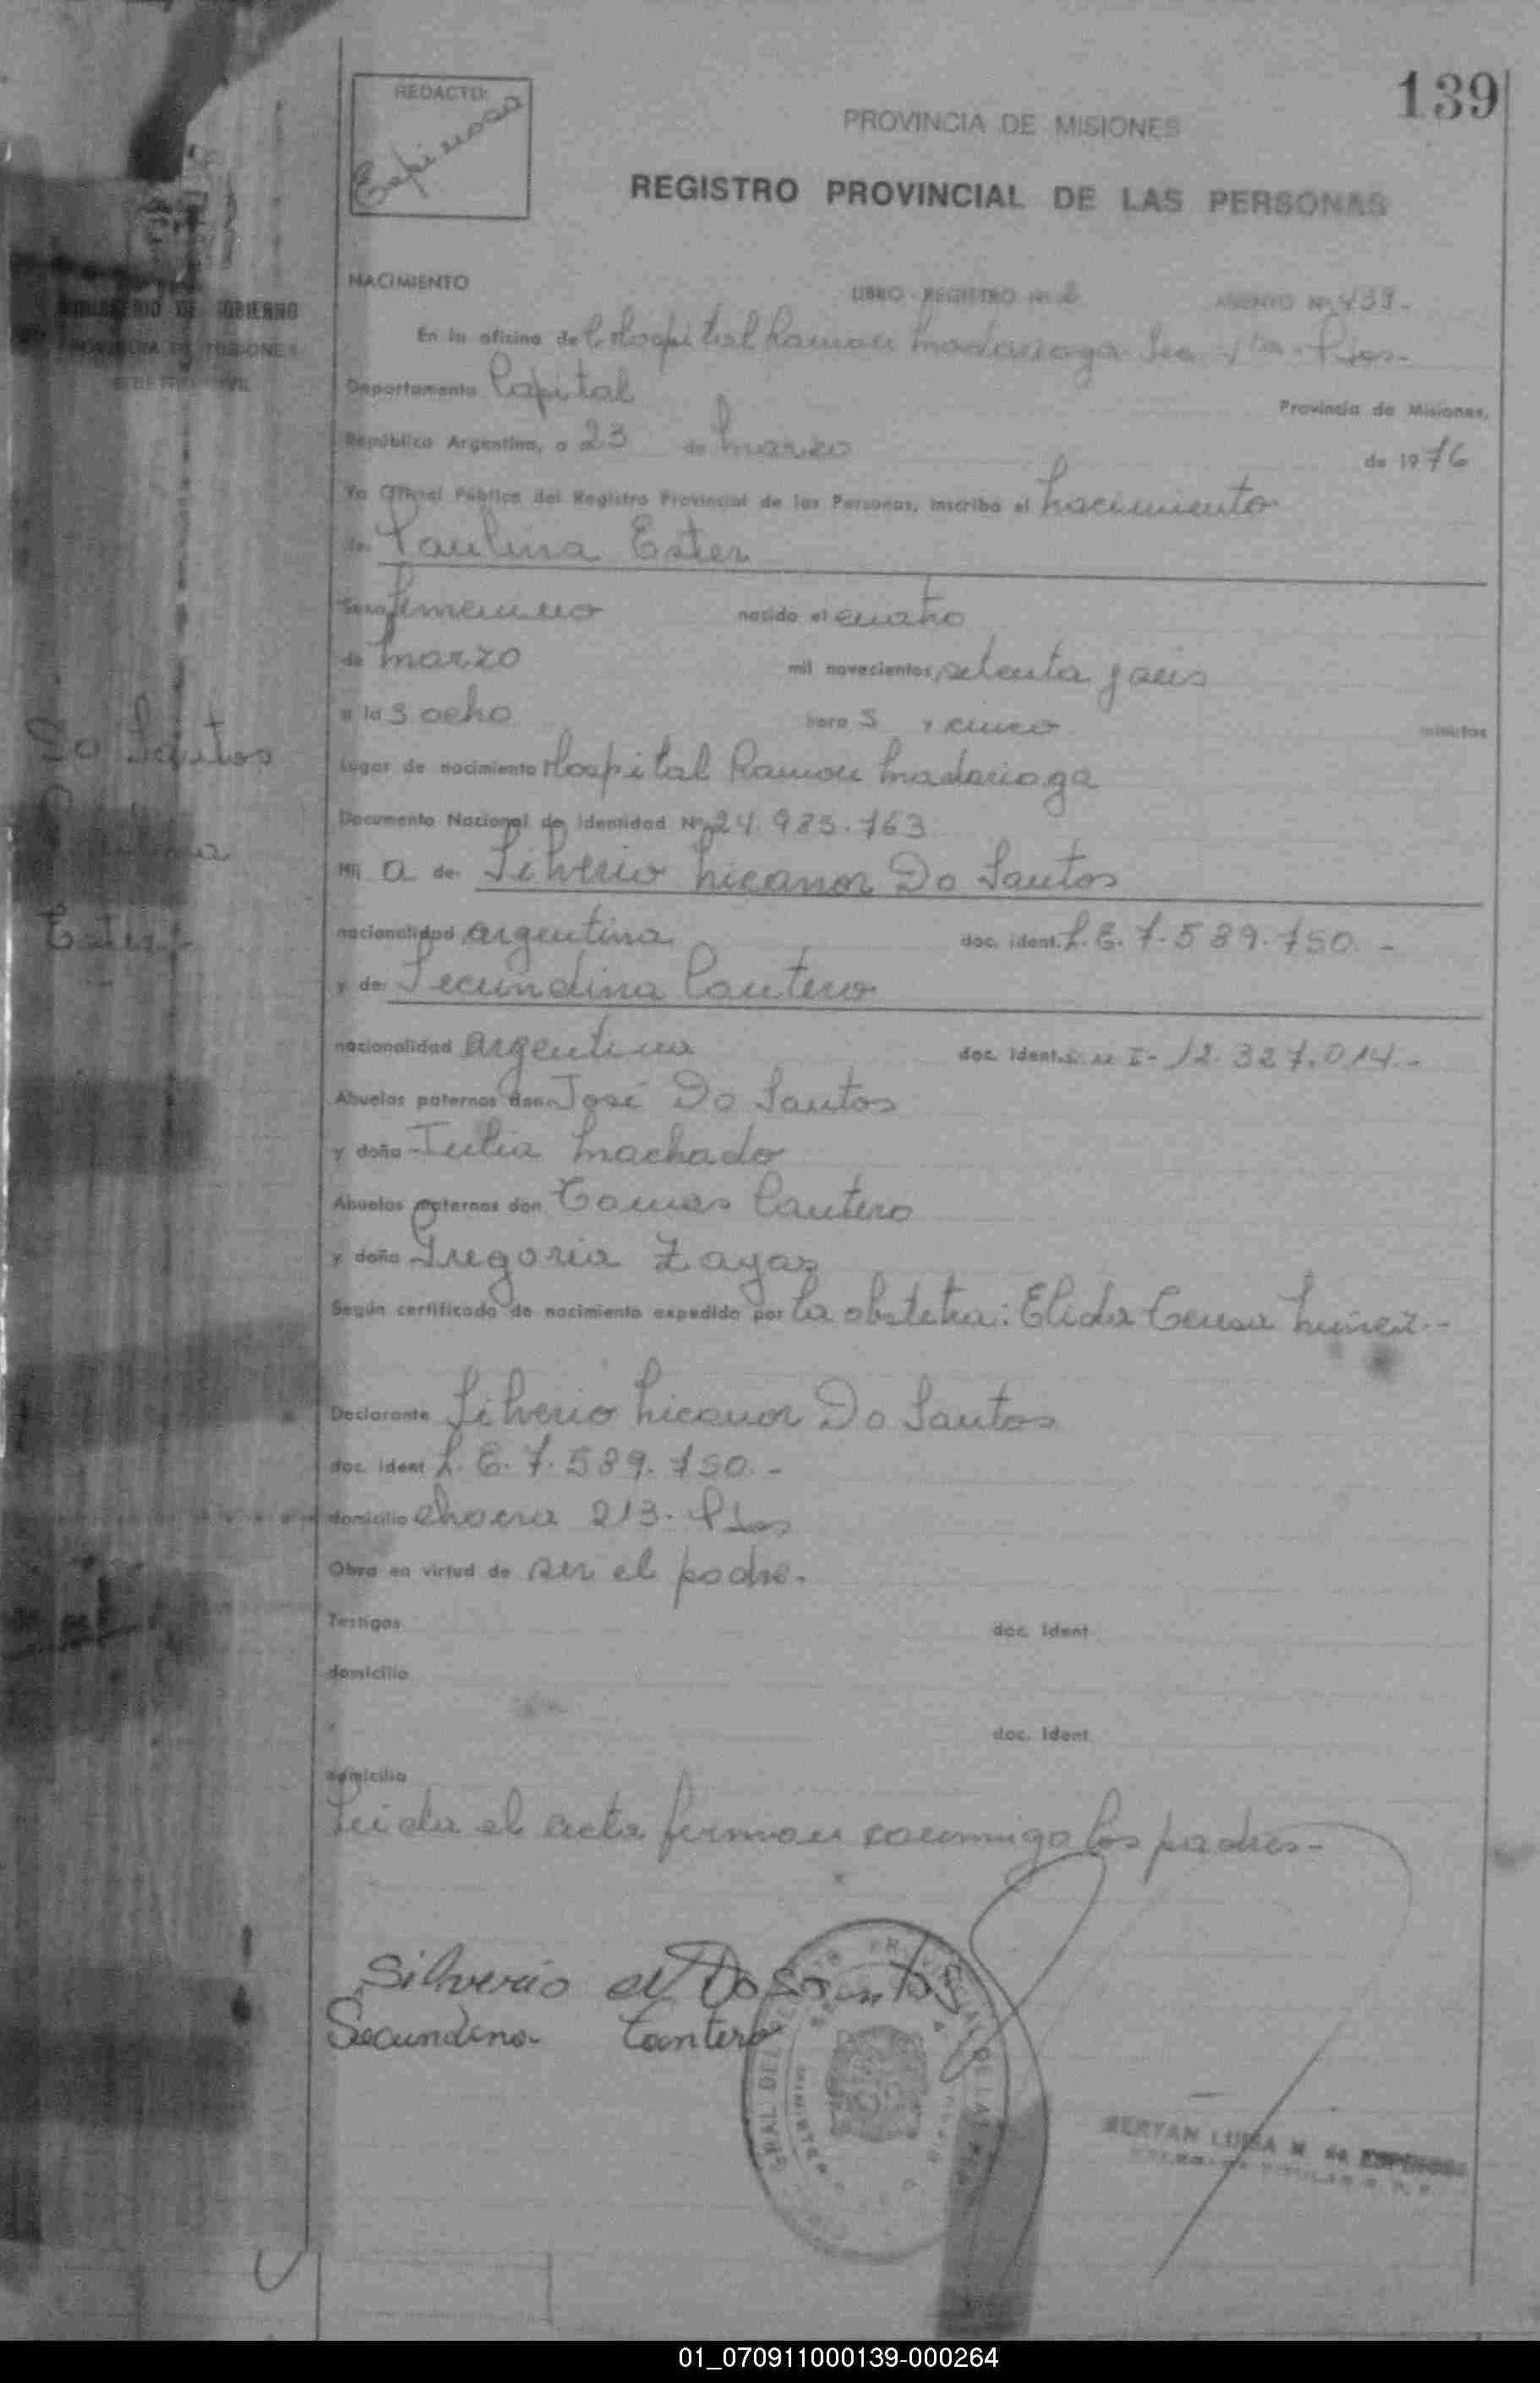 139
REDACTO:
Espinosa
PROVINCIA DE MISIONES
REGISTRO PROVINCIAL DE LAS PERSONAS
MINISTERIO DE GOBIERNO
PROVINCIA DE MISIONES
REGISTRO CIVIL
NACIMIENTO LIBRO - REGISTRO Nº 2 ASIENTO Nº 439.-
En la oficina del Hospital Ramon Madariaga Psas.-
Departamento Capital
Provincia de Misiones,
República Argentina, a 23 de Marzo de 1976
Yo Oficial Público del Registro Provincial de las Personas, inscribo el Nacimiento
de Paulina Ester
Sexo femenino nacido el cuatro
de marzo mil novecientos setenta y seis
a las ocho horas y cinco minutos
Do Santos
Lugar de nacimiento Hospital Ramon Madariaga
Documento Nacional de Identidad Nº 24.983.763
Paulina
Hija de Silverio Nicanor Do Santos
Ester
nacionalidad argentina doc. ident. L.E. 7.589.750.-
y de Secundina Cantero
nacionalidad argentina doc. ident. D.N.I- 12.327.014.-
Abuelos paternos don José Do Santos
y doña Julia Machado
Abuelos maternos don Tomas Cantero
y doña Gregoria Zayas
Según certificado de nacimiento expedido por la obstetra: Elida Nuñez.-
Declarante Silverio Nicanor Do Santos
doc. ident L.E. 7.589.750.-
domicilio chacra 213. Psas
Obra en virtud de ser el padre.
Testigos doc. ident
domicilio
y doc. ident
domicilio
Leida el acta firman conmigo los padres.-
Silverio N Do Santos
Secundina Cantero
BERTAN LUISA N de ESPINOSA
01_070911000139-000264